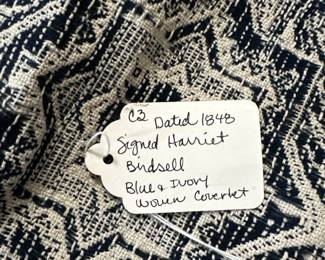 C3 Dated 1848
Signed Harriet
Birdsell
Blue & Ivory
Woven Coverlet